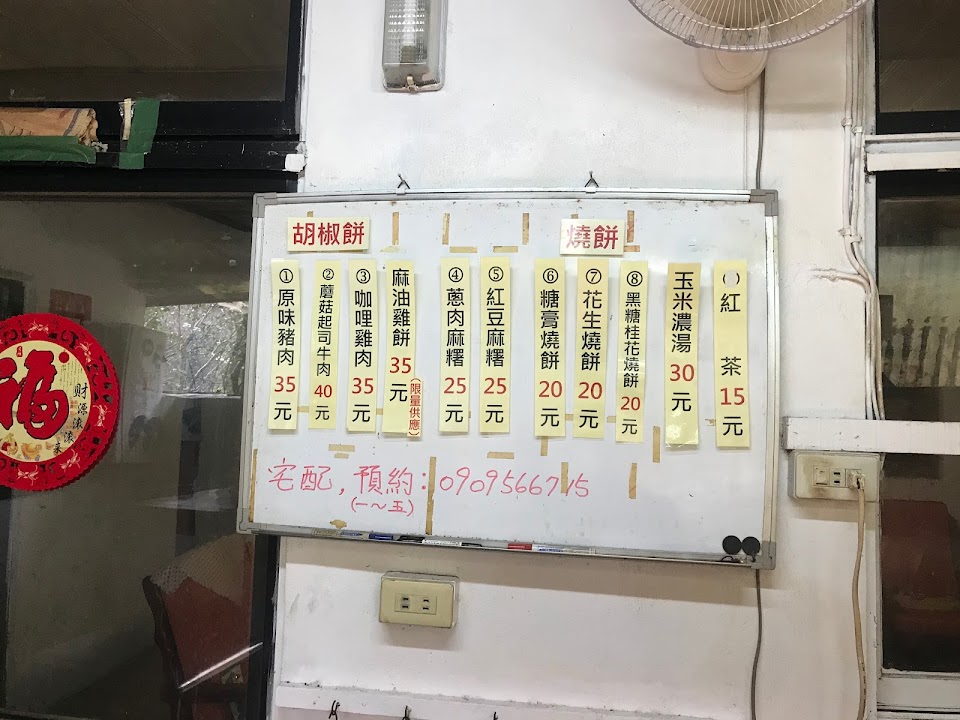 胡椒餅
①原味豬肉35元
②蘑菇起司牛肉40元
③咖哩雞肉35元
麻油雞餅35元
(限量供應)
④蔥肉麻糬25元
⑤紅豆麻糬25元
燒餅
⑥糖膏燒餅20元
⑦花生燒餅20元
⑧黑糖桂花燒餅20元
玉米濃湯30元
紅茶15元
宅配,預約:0909566715
(一~五)
福
財源滾滾來